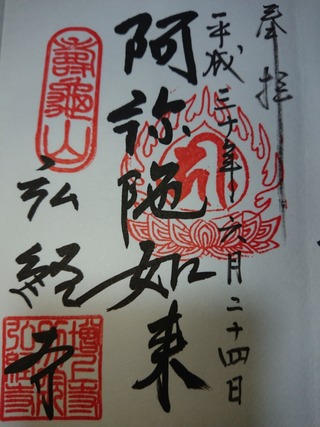 奉拝
平成三十年六月二十四日
阿弥陀如来
壽亀山
弘経寺